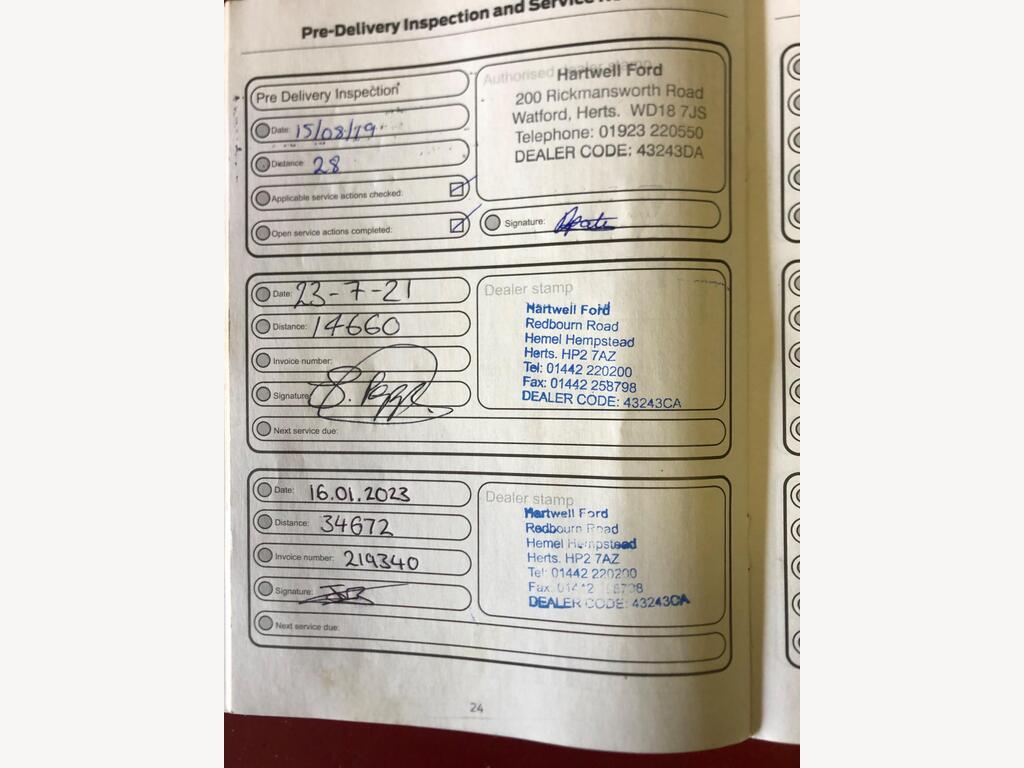 Pre-Delivery Inspection and Service
Pre Delivery Inspection
Date: 15/08/19
Distance: 28
Applicable service actions checked:
Open service actions completed:
Authorised dealer stamp
Hartwell Ford
200 Rickmansworth Road
Watford, Herts. WD18 7JS
Telephone: 01923 220550
DEALER CODE: 43243DA
Signature:
Date: 23-7-21
Distance: 14660
Invoice number:
Signature:
Next service due:
Dealer stamp
Hartwell Ford
Redbourn Road
Hemel Hempstead
Herts. HP2 7AZ
Tel: 01442 220200
Fax: 01442 258798
DEALER CODE: 43243CA
Date: 16.01.2023
Distance: 34672
Invoice number: 219340
Signature:
Next service due:
Dealer stamp
Hartwell Ford
Redbourn Road
Hemel Hempstead
Herts. HP2 7AZ
Tel: 01442 220200
Fax: 01442
DEALER CODE: 43243CA
24